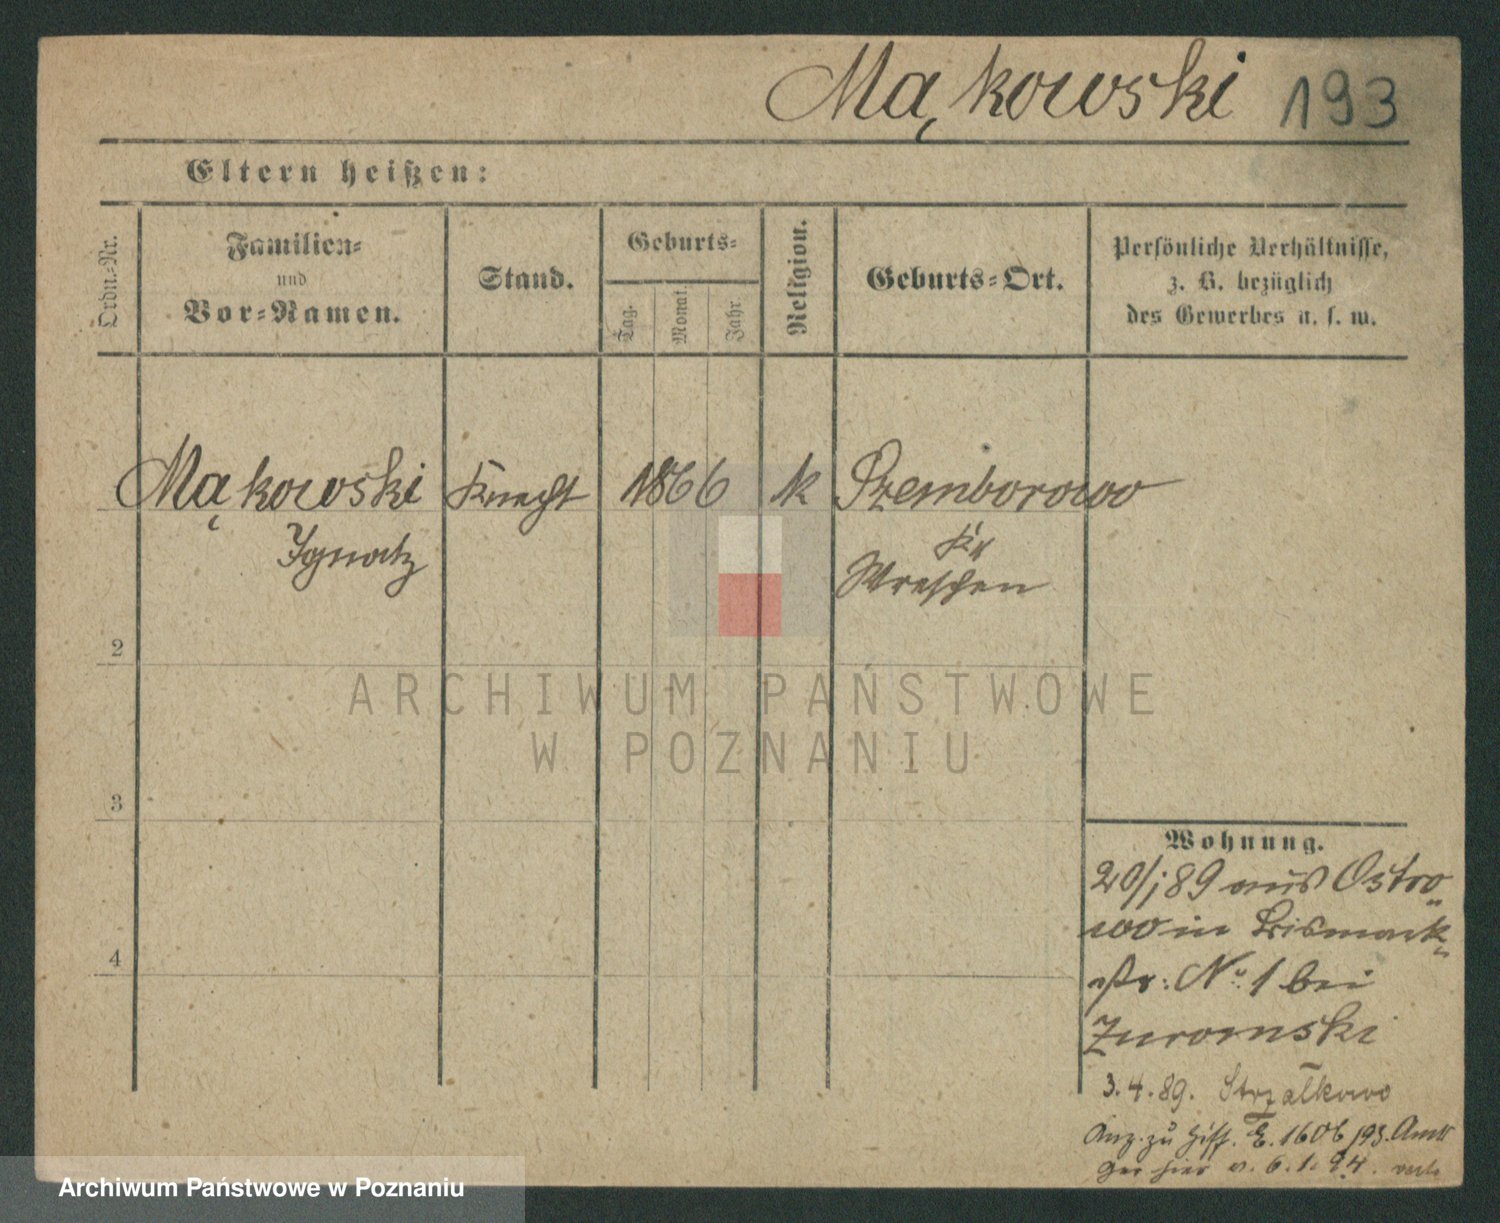 Mąkowski 193
Eltern heißen:
Ordn.-Nr.
Familien-
und
Vor-Namen.
Stand.
Geburts-
Tag.
Monat.
Jahr
Religion.
Geburts-Ort.
Persönliche Verhältnisse,
z. B. bezüglich
des Gewerbes u. s. w.
Mąkowski Knecht 1866 k Szemborowo
Ignatz
Kr
Wreschen
2
3
4
Wohnung.
20/1 89 aus Ostro-
wo in Bismark-
str: No 1 bei
Zuromski
3.4.89. Strzałkowo
Anz. zu E. 1606/93. Amts
Ger hier v. 6.1.94.
ARCHIWUM PAŃSTWOWE
W POZNANIU
Archiwum Państwowe w Poznaniu